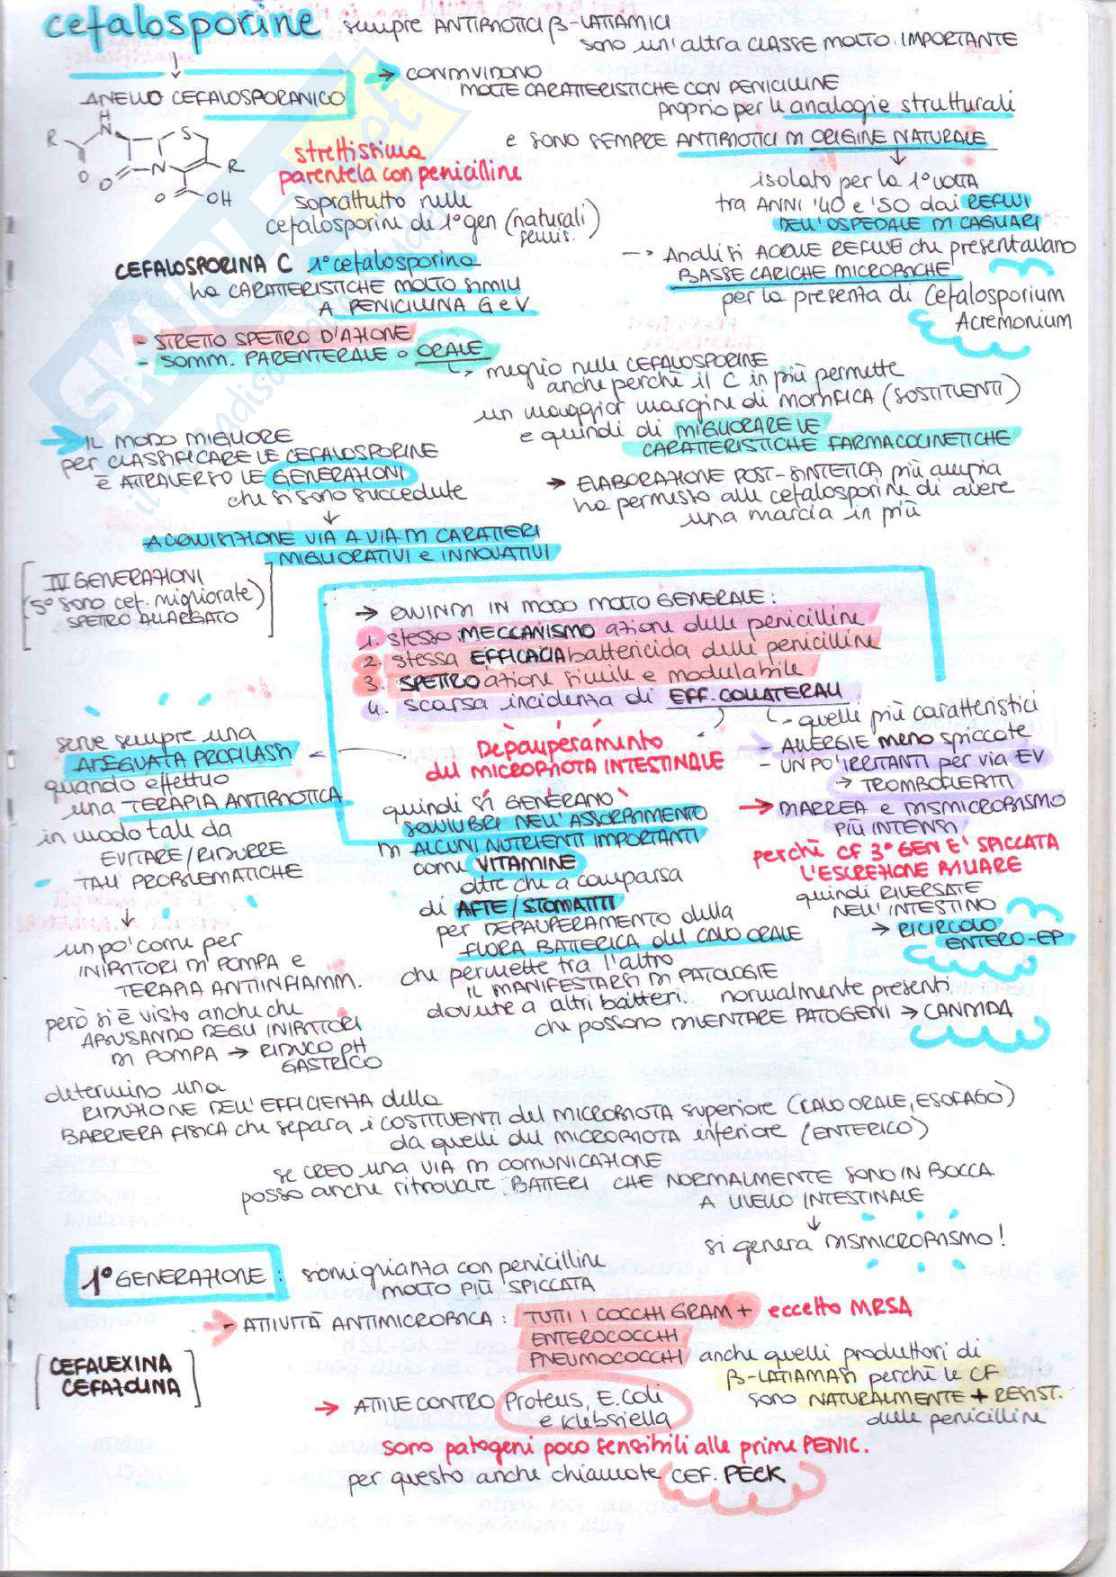 cefalosporine sempre ANTIBIOTICI β-LATTAMICI
sono un'altra CLASSE MOLTO IMPORTANTE
ANELLO CEFALOSPORANICO
→ CONDIVIDONO
MOLTE CARATTERISTICHE CON PENICILLINE
proprio per le analogie strutturali
e SONO SEMPRE ANTIBIOTICI DI ORIGINE NATURALE
H
R N S
O O N R
O OH
strettissima
parentela con penicilline
soprattutto nelle
cefalosporine di 1° gen (naturali)
semis.
isolato per la 1° VOLTA
tra ANNI '40 e '50 dai REFLUI
DELL'OSPEDALE DI CAGLIARI
→ Analisi ACQUE REFLUE che presentavano
BASSE CARICHE MICROBICHE
per la presenza di Cefalosporium
Acremonium
CEFALOSPORINA C 1° cefalosporina
ha CARATTERISTICHE MOLTO SIMILI
A PENICILLINA G e V
- STRETTO SPETTRO D'AZIONE
- SOMM. PARENTERALE o ORALE
↳ meglio nelle CEFALOSPORINE
anche perchè il C in più permette
un maggior margine di MODIFICA (SOSTITUENTI)
e quindi di MIGLIORARE LE
CARATTERISTICHE FARMACOCINETICHE
→ ELABORAZIONE POST-SINTETICA più ampia
ha permesso alle cefalosporine di avere
una marcia in più
→ IL MODO MIGLIORE
per CLASSIFICARE LE CEFALOSPORINE
È ATTRAVERSO LE GENERAZIONI
che si sono succedute
↓
ACQUISIZIONE VIA A VIA DI CARATTERI
MIGLIORATIVI e INNOVATIVI
IV GENERAZIONI
(5° sono cef. migliorate)
SPETTRO ALLARGATO
→ QUINDI IN MODO MOLTO GENERALE:
1. stesso MECCANISMO azione delle penicilline
2. stessa EFFICACIA battericida delle penicilline
3. SPETTRO azione simile e modulabile
4. scarsa incidenza di EFF. COLLATERALI
↳ quelle più caratteristici
- ALLERGIE meno spiccate
- UN PO' IRRITANTI per via EV
→ TROMBOFLEBITI
→ DIARREA e DISMICROBISMO
PIÙ INTENSI
perchè CF 3° GEN È SPICCATA
L'ESCREZIONE BILIARE
quindi RIVERSATE
NELL'INTESTINO
→ RICIRCOLO
ENTERO-EP
Depauperamento
del MICROBIOTA INTESTINALE
quindi si GENERANO
SQUILIBRI NELL'ASSORBIMENTO
DI ALCUNI NUTRIENTI IMPORTANTI
come VITAMINE
oltre che a comparsa
di AFTE/STOMATITI
per DEPAUPERAMENTO della
FLORA BATTERICA del CAVO ORALE
che permette tra l'altro
IL MANIFESTARSI DI PATOLOGIE
dovute a altri batteri normalmente presenti
che possono DIVENTARE PATOGENI → CANDIDA
serve sempre una
ADEGUATA PROFILASSI
quando effettuo
una TERAPIA ANTIBIOTICA
in modo tale da
EVITARE/RIDURRE
TALI PROBLEMATICHE
↓
un po' come per
INIBITORI DI POMPA e
TERAPIA ANTIINFIAMM.
però si è visto anche che
ABUSANDO DEGLI INIBITORI
DI POMPA → RIDUCO PH
GASTRICO
determino una
RIDUZIONE DELL'EFFICIENZA della
BARRIERA FISICA che separa i COSTITUENTI del MICROBIOTA superiore (CAVO ORALE, ESOFAGO)
da quelli del MICROBIOTA inferiore (ENTERICO)
se CREO una VIA DI COMUNICAZIONE
posso anche ritrovare BATTERI CHE NORMALMENTE SONO IN BOCCA
A LIVELLO INTESTINALE
↓
si genera DISMICROBISMO!
1° GENERAZIONE: somiglianza con penicilline
MOLTO PIÙ SPICCATA
- ATTIVITÀ ANTIMICROBICA: TUTTI I COCCHI GRAM + eccetto MRSA
ENTEROCOCCHI
PNEUMOCOCCHI anche quelli produttori di
β-LATTAMASI perchè le CF
sono NATURALMENTE + RESIST.
delle penicilline
CEFALEXINA
CEFAZOLINA
→ ATTIVE CONTRO Proteus, E.Coli
e Klebsiella
sono patogeni poco sensibili alle prime PENIC.
per questo anche chiamate CEF. PECK